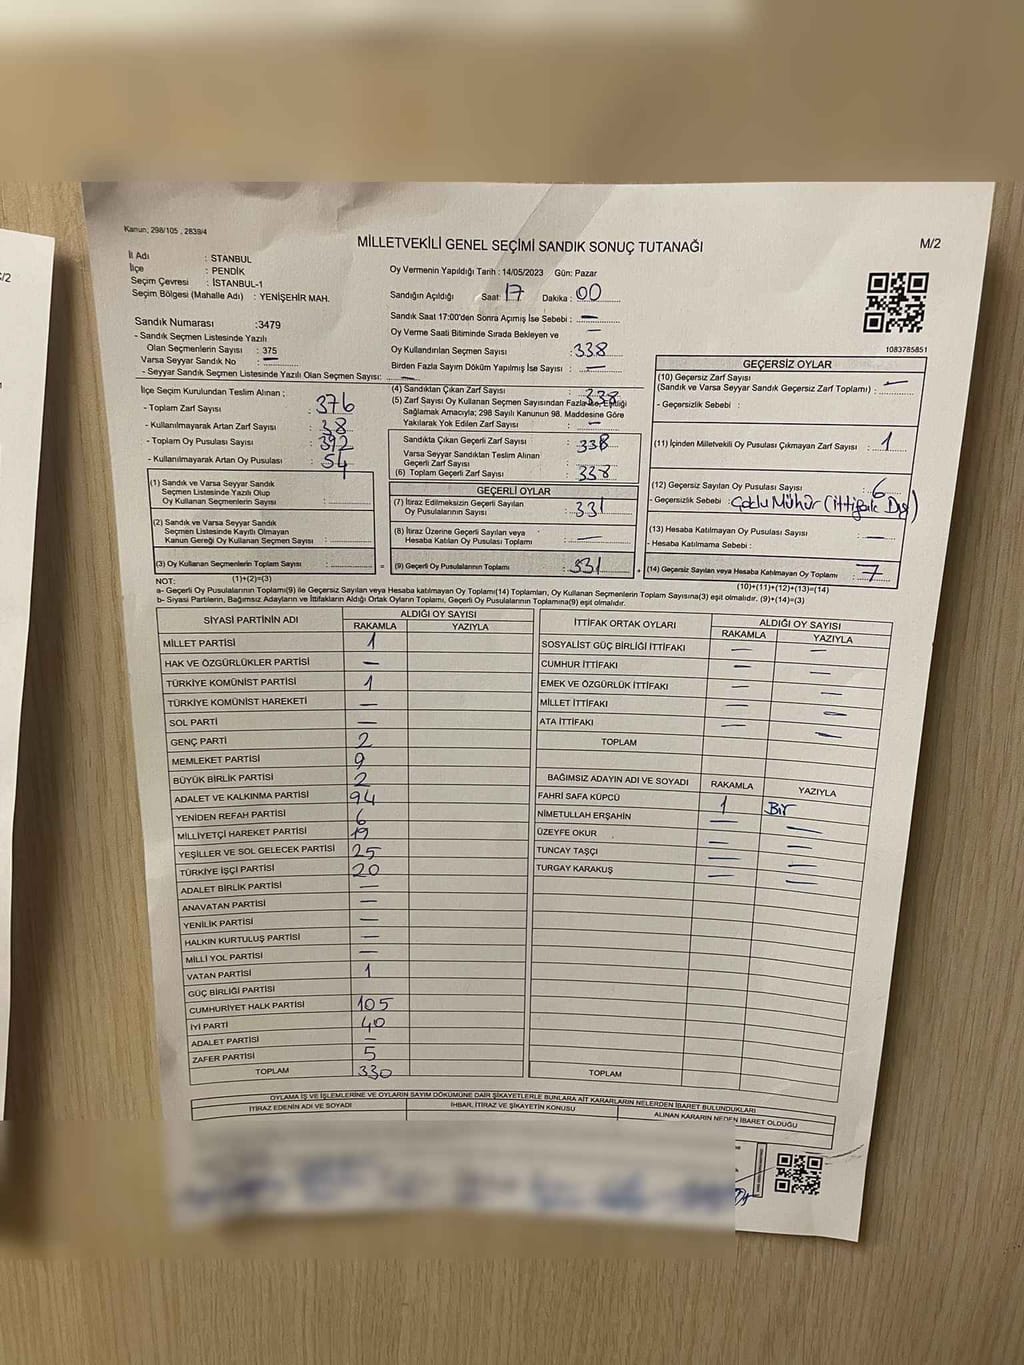 /2
Kanun; 298/105 , 2839/4
MİLLETVEKİLİ GENEL SEÇİMİ SANDIK SONUÇ TUTANAĞI
M/2
İl Adı : STANBUL
İlçe : PENDİK
Seçim Çevresi : İSTANBUL-1
Seçim Bölgesi (Mahalle Adı) : YENİŞEHİR MAH.
Sandık Numarası :3479
- Sandık Seçmen Listesinde Yazılı
Olan Seçmenlerin Sayısı : 375
Varsa Seyyar Sandık No : —
- Seyyar Sandık Seçmen Listesinde Yazılı Olan Seçmen Sayısı: —
Oy Vermenin Yapıldığı Tarih : 14/05/2023 Gün: Pazar
Sandığın Açıldığı Saat: 17 Dakika : 00
Sandık Saat 17:00'den Sonra Açımış İse Sebebi : —
Oy Verme Saati Bitiminde Sırada Bekleyen ve —
Oy Kullandırılan Seçmen Sayısı :338
Birden Fazla Sayım Döküm Yapılmış İse Sayısı : —
1083785851
İlçe Seçim Kurulundan Teslim Alınan ;
- Toplam Zarf Sayısı : 376
- Kullanılmayarak Artan Zarf Sayısı : 38
- Toplam Oy Pusulası Sayısı : 392
- Kullanılmayarak Artan Oy Pusulası : 54
(1) Sandık ve Varsa Seyyar Sandık
Seçmen Listesinde Yazılı Olup
Oy Kullanan Seçmenlerin Sayısı :
(2) Sandık ve Varsa Seyyar Sandık
Seçmen Listesinde Kayıtlı Olmayan
Kanun Gereği Oy Kullanan Seçmen Sayısı :
(3) Oy Kullanan Seçmenlerin Toplam Sayısı : =
(1)+(2)=(3)
(4) Sandıktan Çıkan Zarf Sayısı : 338
(5) Zarf Sayısı Oy Kullanan Seçmen Sayısından Fazla İse, Eşitliği
Sağlamak Amacıyla; 298 Sayılı Kanunun 98. Maddesine Göre
Yakılarak Yok Edilen Zarf Sayısı : —
Sandıkta Çıkan Geçerli Zarf Sayısı : 338
Varsa Seyyar Sandıktan Teslim Alınan
Geçerli Zarf Sayısı :
(6) Toplam Geçerli Zarf Sayısı : 338
GEÇERLİ OYLAR
(7) İtiraz Edilmeksizin Geçerli Sayılan
Oy Pusulalarının Sayısı : 331
(8) İtiraz Üzerine Geçerli Sayılan veya
Hesaba Katılan Oy Pusulası Toplamı : —
(9) Geçerli Oy Pusulalarının Toplamı : 331 +
GEÇERSİZ OYLAR
(10) Geçersiz Zarf Sayısı
(Sandık ve Varsa Seyyar Sandık Geçersiz Zarf Toplamı) : —
- Geçersizlik Sebebi :
(11) İçinden Milletvekili Oy Pusulası Çıkmayan Zarf Sayısı : 1
(12) Geçersiz Sayılan Oy Pusulası Sayısı : 6
- Geçersizlik Sebebi : Çoklu Mühür (İttifak Dışı)
(13) Hesaba Katılmayan Oy Pusulası Sayısı : —
- Hesaba Katılmama Sebebi :
(14) Geçersiz Sayılan veya Hesaba Katılmayan Oy Toplamı : 7
(10)+(11)+(12)+(13)=(14)
NOT:
a- Geçerli Oy Pusulalarının Toplamı(9) ile Geçersiz Sayılan veya Hesaba katılmayan Oy Toplamı(14) Toplamları, Oy Kullanan Seçmenlerin Toplam Sayısına(3) eşit olmalıdır. (9)+(14)=(3)
b- Siyasi Partilerin, Bağımsız Adayların ve İttifakların Aldığı Ortak Oyların Toplamı, Geçerli Oy Pusulalarının Toplamına(9) eşit olmalıdır.
SİYASİ PARTİNİN ADI ALDIĞI OY SAYISI
RAKAMLA YAZIYLA
MİLLET PARTİSİ 1
HAK VE ÖZGÜRLÜKLER PARTİSİ —
TÜRKİYE KOMÜNİST PARTİSİ 1
TÜRKİYE KOMÜNİST HAREKETİ —
SOL PARTİ —
GENÇ PARTİ 2
MEMLEKET PARTİSİ 9
BÜYÜK BİRLİK PARTİSİ 2
ADALET VE KALKINMA PARTİSİ 94
YENİDEN REFAH PARTİSİ 6
MİLLİYETÇİ HAREKET PARTİSİ 19
YEŞİLLER VE SOL GELECEK PARTİSİ 25
TÜRKİYE İŞÇİ PARTİSİ 20
ADALET BİRLİK PARTİSİ —
ANAVATAN PARTİSİ —
YENİLİK PARTİSİ —
HALKIN KURTULUŞ PARTİSİ —
MİLLİ YOL PARTİSİ —
VATAN PARTİSİ 1
GÜÇ BİRLİĞİ PARTİSİ
CUMHURİYET HALK PARTİSİ 105
İYİ PARTİ 40
ADALET PARTİSİ —
ZAFER PARTİSİ 5
TOPLAM 330
İTTİFAK ORTAK OYLARI ALDIĞI OY SAYISI
RAKAMLA YAZIYLA
SOSYALİST GÜÇ BİRLİĞİ İTTİFAKI — —
CUMHUR İTTİFAKI — —
EMEK VE ÖZGÜRLÜK İTTİFAKI — —
MİLLET İTTİFAKI — —
ATA İTTİFAKI — —
TOPLAM
BAĞIMSIZ ADAYIN ADI VE SOYADI RAKAMLA YAZIYLA
FAHRİ SAFA KÜPCÜ 1 Bir
NİMETULLAH ERŞAHİN — —
ÜZEYFE OKUR — —
TUNCAY TAŞÇI — —
TURGAY KARAKUŞ — —
TOPLAM
OYLAMA İŞ VE İŞLEMLERİNE VE OYLARIN SAYIM DÖKÜMÜNE DAİR ŞİKAYETLERLE BUNLARA AİT KARARLARIN NELERDEN İBARET BULUNDUKLARI
İTİRAZ EDENİN ADI VE SOYADI İHBAR, İTİRAZ VE ŞİKAYETİN KONUSU ALINAN KARARIN NEDEN İBARET OLDUĞU